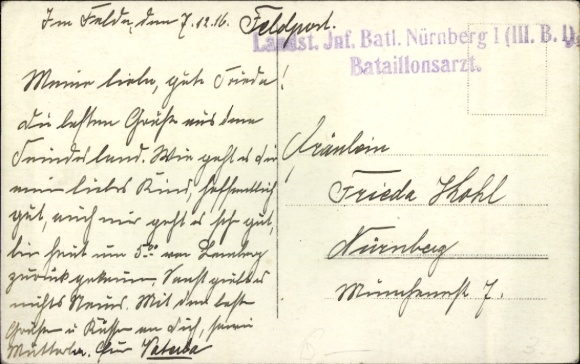 Im Felde, den 7.12.16. Feldpost.
Landst. Inf. Batl. Nürnberg 1 (III. B. 1).
Bataillonsarzt.
Meine liebe, gute Frieda!
Die besten Grüße aus dem
Feindesland. Wie geht es Dir
mein liebes Kind, hoffentlich
gut, auch mir geht es sehr gut,
bin heut um 5 von Lemberg
zurück gekomm. Sonst gibt es
nichts Neues. Mit den best
Grüßen u Küssen an Dich, sowie
Mutterle. Dein Vaterle
Fräulein
Frieda Kohl
Nürnberg
Münchenerst 7.